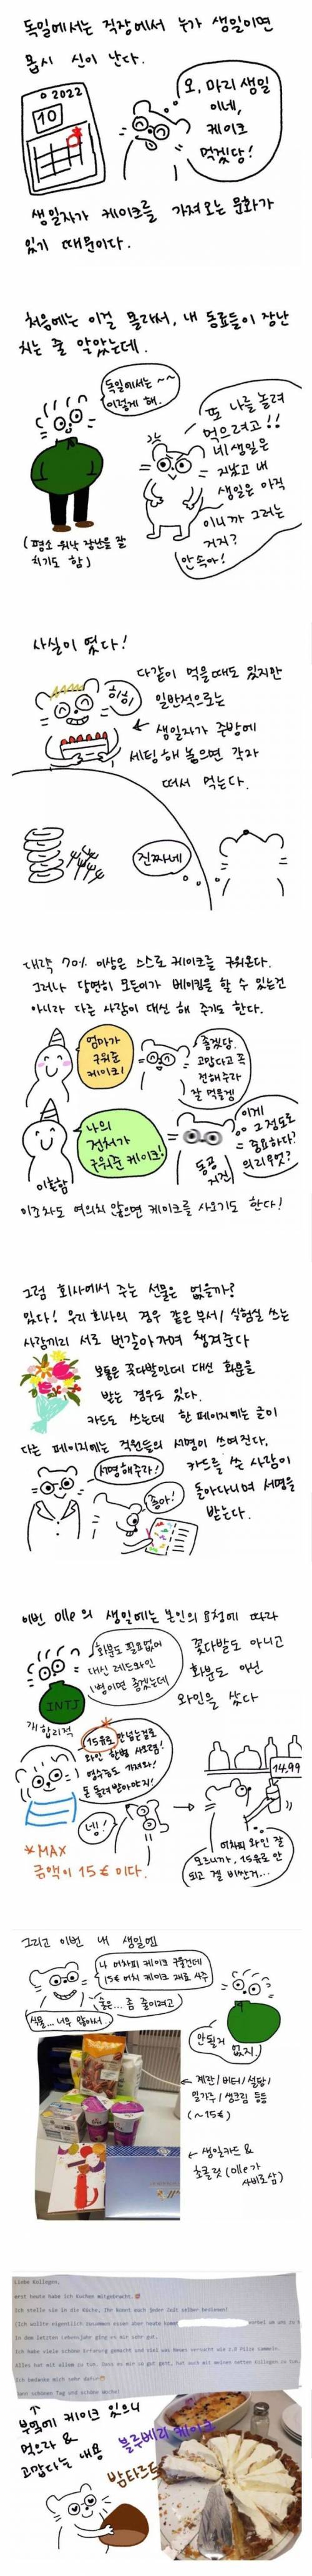 독일에서는 직장에서 누가 생일이면
몹시 신이 난다.
2022
10
오, 마리 생일
이네,
케이크
먹겠당!
생일자가 케이크를 가져오는 문화가
있기 때문이다.
처음에는 이걸 몰라서, 내 동료들이 장난
치는 줄 알았는데.
독일에서는~~
이렇게 해.
또 나를 놀려
먹으려고!!
네 생일은
지났고 내
생일은 아직
이니까 그러는
거지?
안속아!
(평소 워낙 장난을 잘
치기도 함)
사실이 였다!
다같이 먹을때도 있지만
히히
일반적으로는
생일자가 주방에
세팅 해 놓으면 각자
떠서 먹는다.
진짜네
대략 70% 이상은 스스로 케이크를 구워온다.
그러나 당연히 모든이가 베이킹을 할 수 있는건
아니라 다른 사람이 대신 해 주기도 한다.
엄마가
구워준
케이크!
좋겠당.
고맙다고 꼭
전해주라
잘 먹을게
나의
전처가
구워준 케이크!
이혼함
동공
지진
이게
그정도로
중요하다?
의리무엇?
이조차도 여의치 않으면 케이크를 사오기도 한다!
그럼 회사에서 주는 선물은 없을까?
있다! 우리 회사의 경우 같은 부서/실험실 쓰는
사람끼리 서로 번갈아 가며 챙겨준다
보통은 꽃다발인데 대신 화분을
받는 경우도 있다.
카드도 쓰는데 한 페이지에는 글이
다른 페이지에는 직원들의 서명이 쓰여진다.
서명해주라!
좋아!
카드를 쓴 사람이
돌아다니며 서명을
받는다.
이번 Olle 의 생일에는 본인의 요청에 따라
화분도 필요없어
대신 레드와인
1병이면 좋겠는데
꽃다발도 아니고
화분도 아닌
와인을 샀다
INTJ
개합리적
15유로 안넘는걸로
와인 한병 사오렴!
영수증도 가져와!
돈 돌려 받아야지!
네!
14.99
어차피 와인 잘
모르니까, 15유로 안
되고 젤 비싼거...
*MAX
금액이 15€ 이다.
그리고 이번 내 생일엔
나 어차피 케이크 구울건데
15€ 어치 케이크 재료 사주
(술은... 좀 줄이려고)
식물... 너무 많아서..
안될거
없지.
← 계란/버터/설탕/
밀가루/생크림 등등
(~15€)
← 생일카드 &
초콜릿 (Olle가
사비로 삼)
Liebe Kollegen,
erst heute habe ich Kuchen mitgebracht.
Ich stelle sie in die Küche, ihr könnt euch jeder Zeit selber bedienen!
In dem letzten Lebensjahr ging es mir sehr gut.
Ich habe viele schöne Erfahrung gemacht und viel was Neues versucht wie z.B Pilze sammeln.
Ich bedanke mich sehr dafür
부엌에 케이크 있으니
먹으라 &
고맙다는 내용
블루베리 케이크
밤타르트